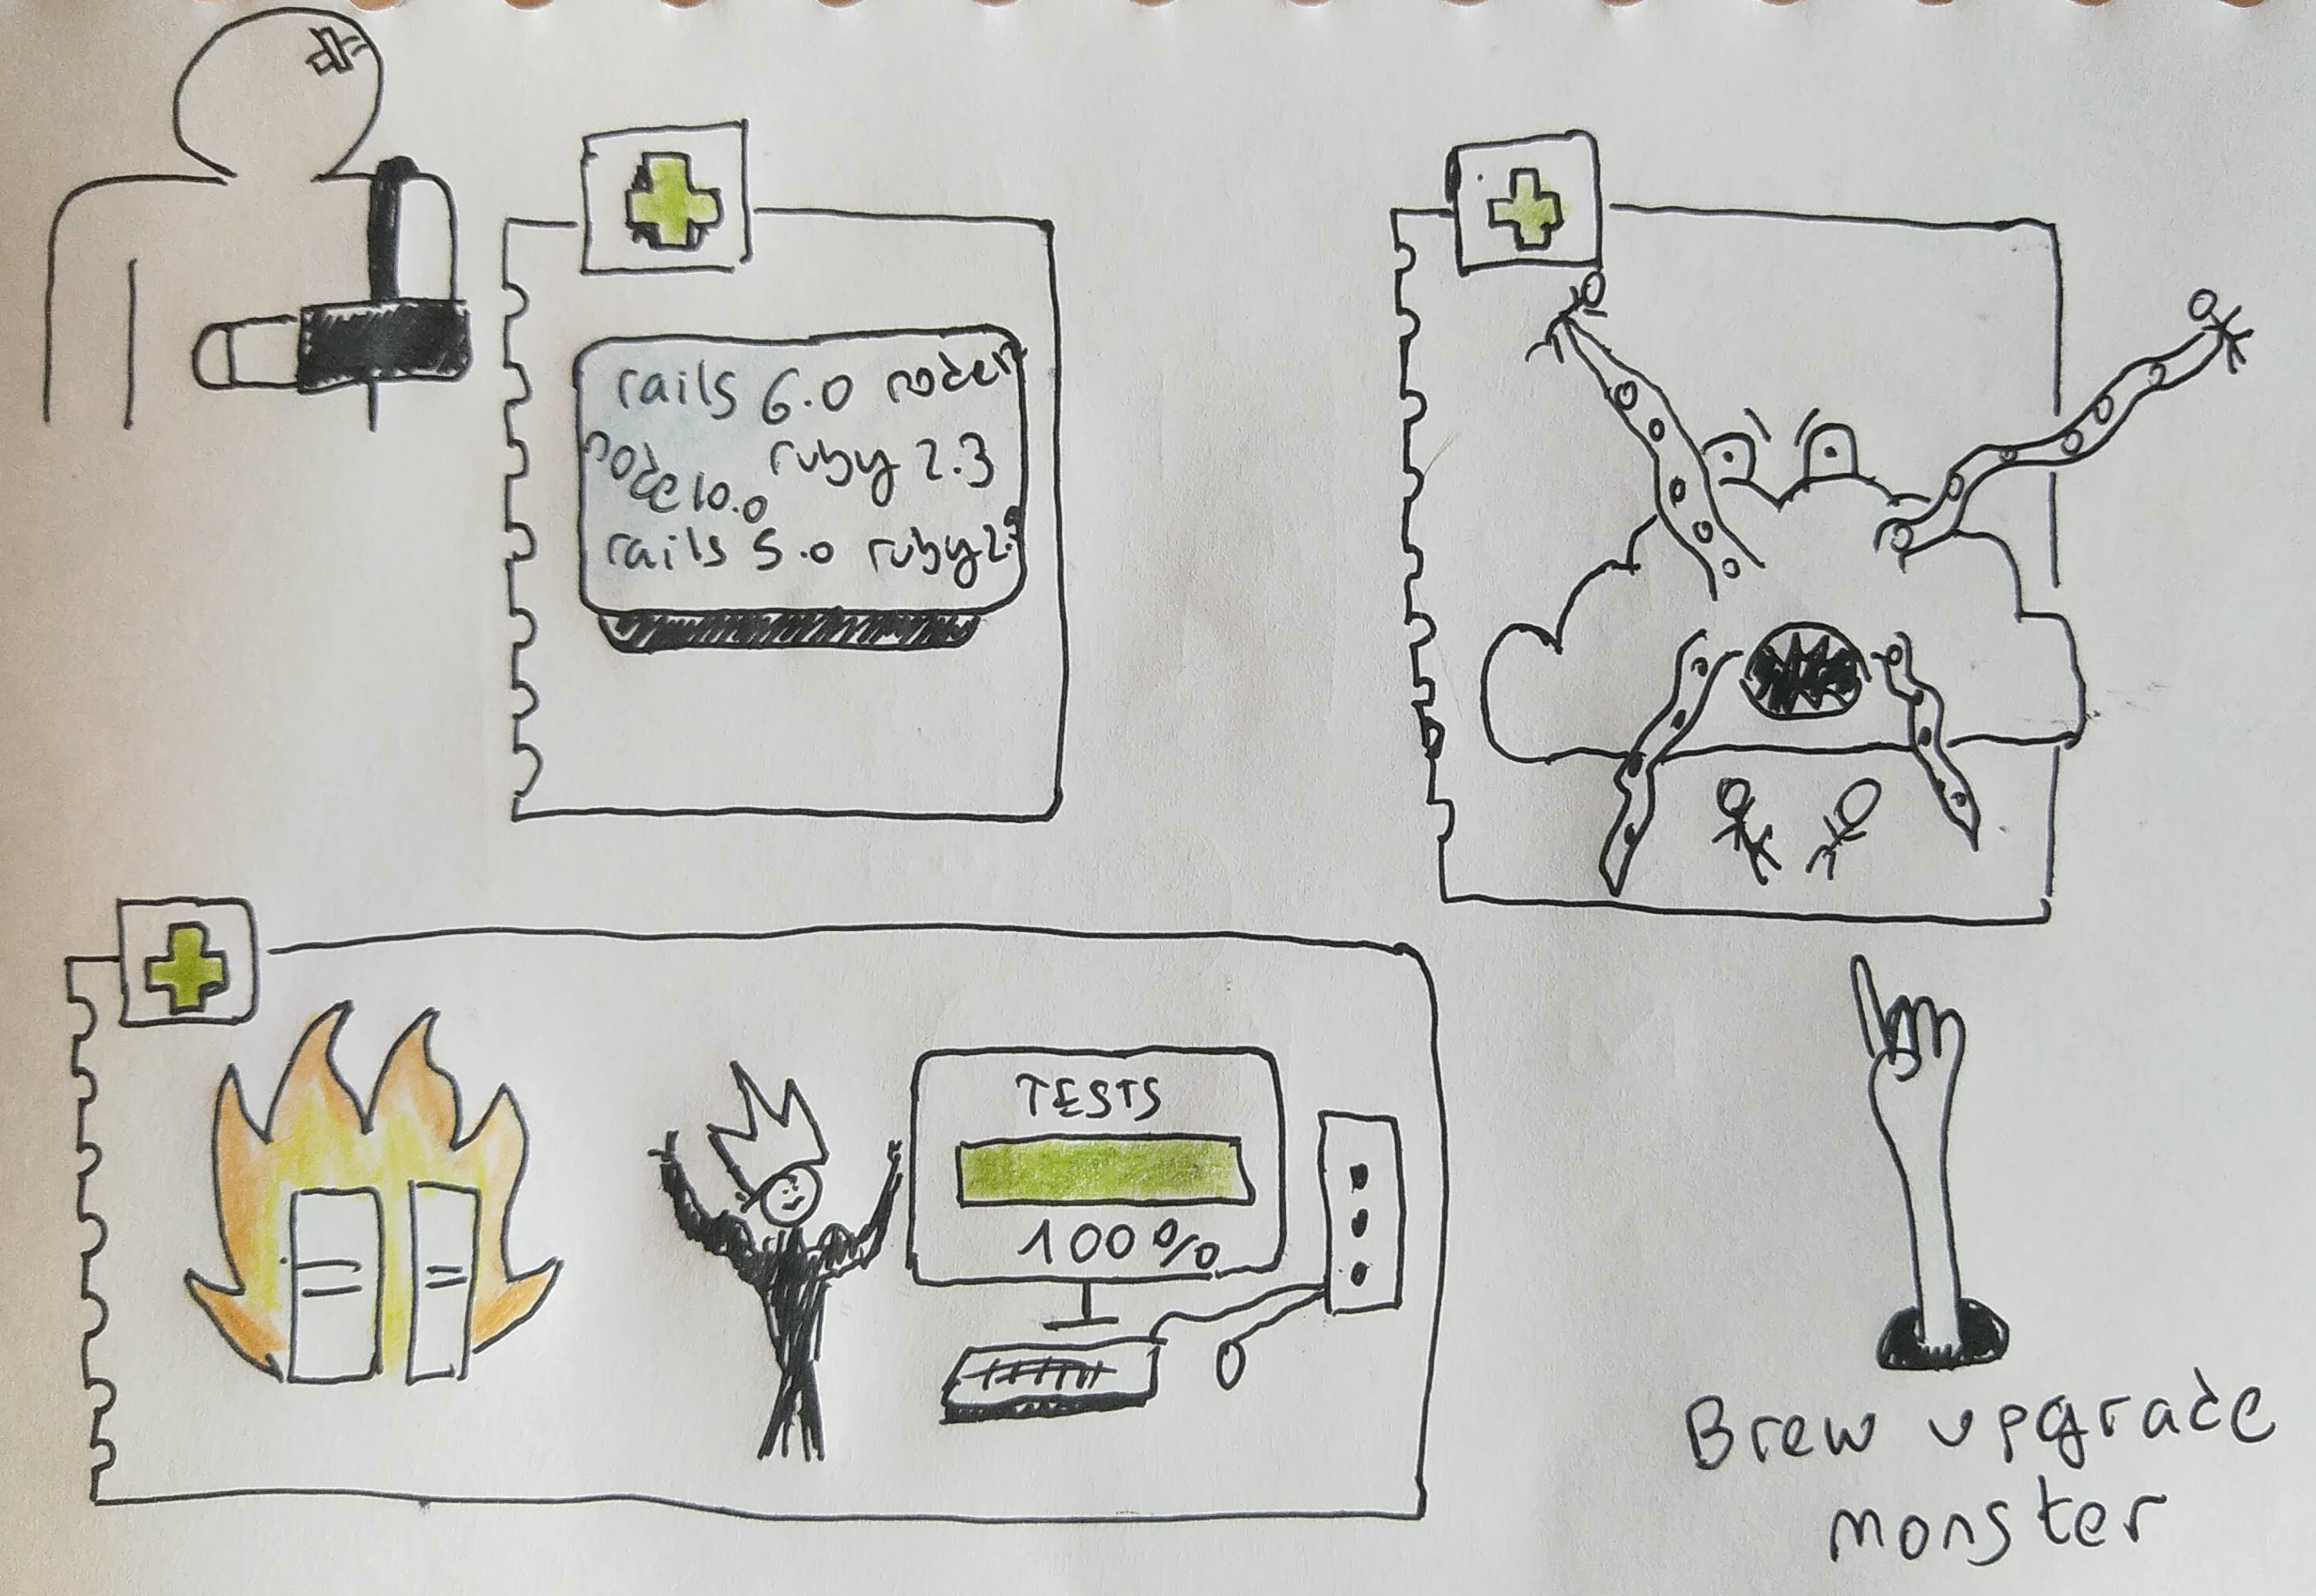 rails 6.0 node
node 10.0 ruby 2.3
rails 5.0 ruby 2.
TESTS
100%
Brew upgrade
monster